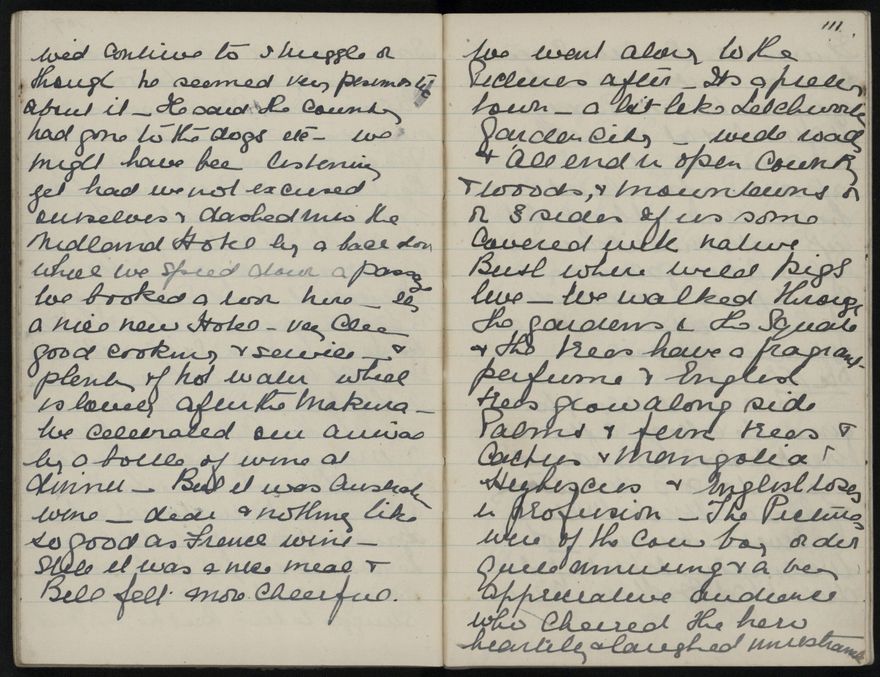 wd continue to struggle on
though he seemed very pessimistic
about it – He said the country
had gone to the dogs etc – we
might have been listening
yet had we not excused
ourselves & dashed into the
Midland Hotel by a back door
where we speed down a passage
We booked a room here – its
a nice new Hotel – very clean
good cooking & service &
plenty of hot water which
is lovely after the Makura –
We celebrated our arrival
by a bottle of wine at
dinner – But it was Australian
wine – dear & nothing like
so good as French wine –
Still it was a nice meal &
Bill felt more cheerful.
111.
We went along to the
Pictures after – Its a pretty
town – a bit like Letchworth
Garden City – wide roads
& all end in open country
& woods, & mountains on
on 3 sides of us some
covered with native
Bush where wild pigs
live – We walked through
the gardens in the Square
& the trees have a fragrant
perfume & English
trees grow along side
Palms & fern trees &
Cactus & Mangolia!
& Hybiscus & English roses
in profusion – The Pictures
were of the Cow boy order
quite amusing & a very
appreciative audience
who cheered the hero
heartily & laughed